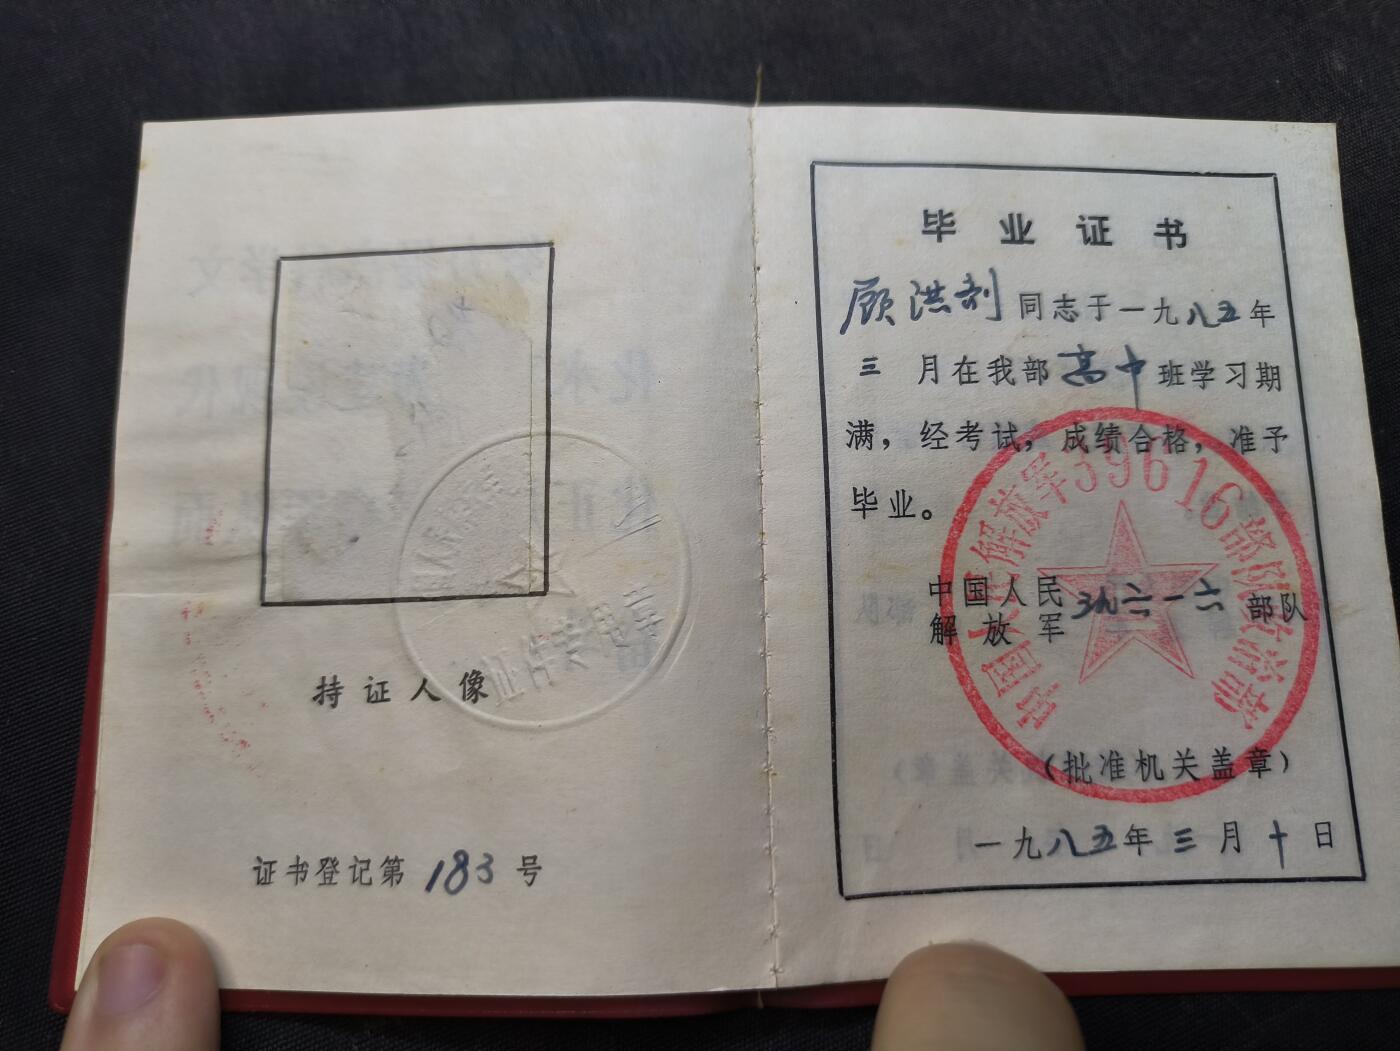 持证人像
证书登记第183号
毕业证书
顾洪剂同志于一九八五年
三月在我部高中班学习期
满，经考试，成绩合格，准予
毕业。
中国人民
解放军
三九六一六部队
中国人民解放军39616部队政治部
（批准机关盖章）
一九八五年三月十日